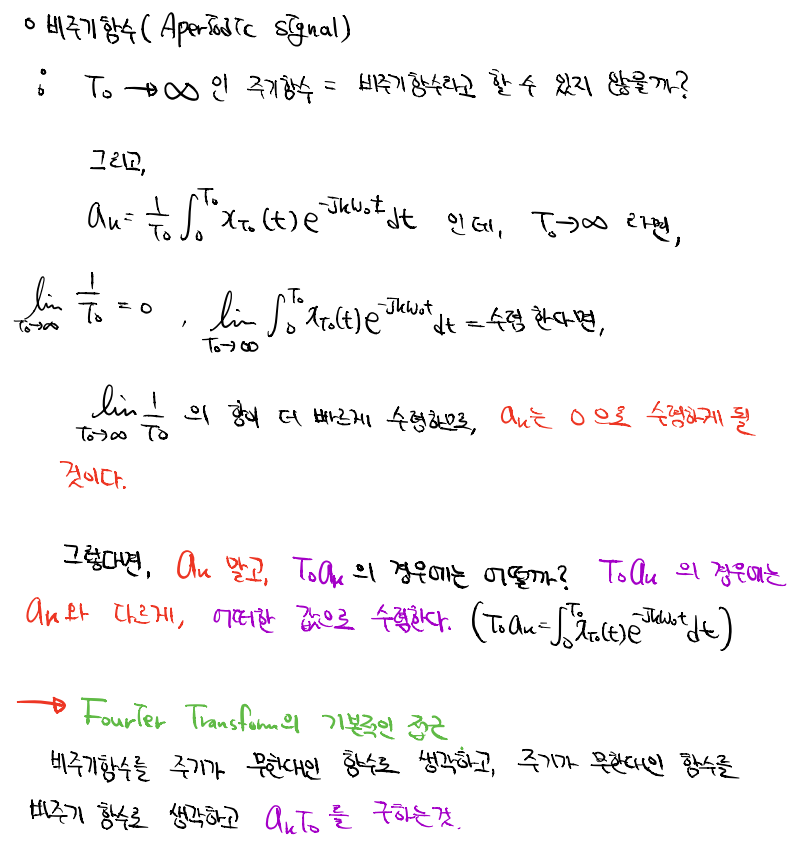 o 비주기함수( Aperiodic signal)
: T₀ → ∞ 인 주기함수 = 비주기함수라고 할 수 있지 않을까?
그리고,
aₖ = 1/T₀ ∫₀^T₀ x_T₀(t) e^(-jkω₀t) dt 인데, T₀→∞ 라면,
lim_(T₀→∞) 1/T₀ = 0 , lim_(T₀→∞) ∫₀^T₀ x_T₀(t) e^(-jkω₀t) dt = 수렴 한다면,
lim_(T₀→∞) 1/T₀ 의 항이 더 빠르게 수렴하므로, aₖ는 0으로 수렴하게 될
것이다.
그렇다면, aₖ 말고, T₀aₖ의 경우에는 어떨까? T₀aₖ 의 경우에는
aₖ와 다르게, 어떠한 값으로 수렴한다. (T₀aₖ = ∫₀^T₀ x_T₀(t) e^(-jkω₀t) dt)
→ Fourier Transform의 기본적인 접근
비주기함수를 주기가 무한대인 함수로 생각하고, 주기가 무한대인 함수를
비주기 함수로 생각하고 aₖT₀를 구하는것.